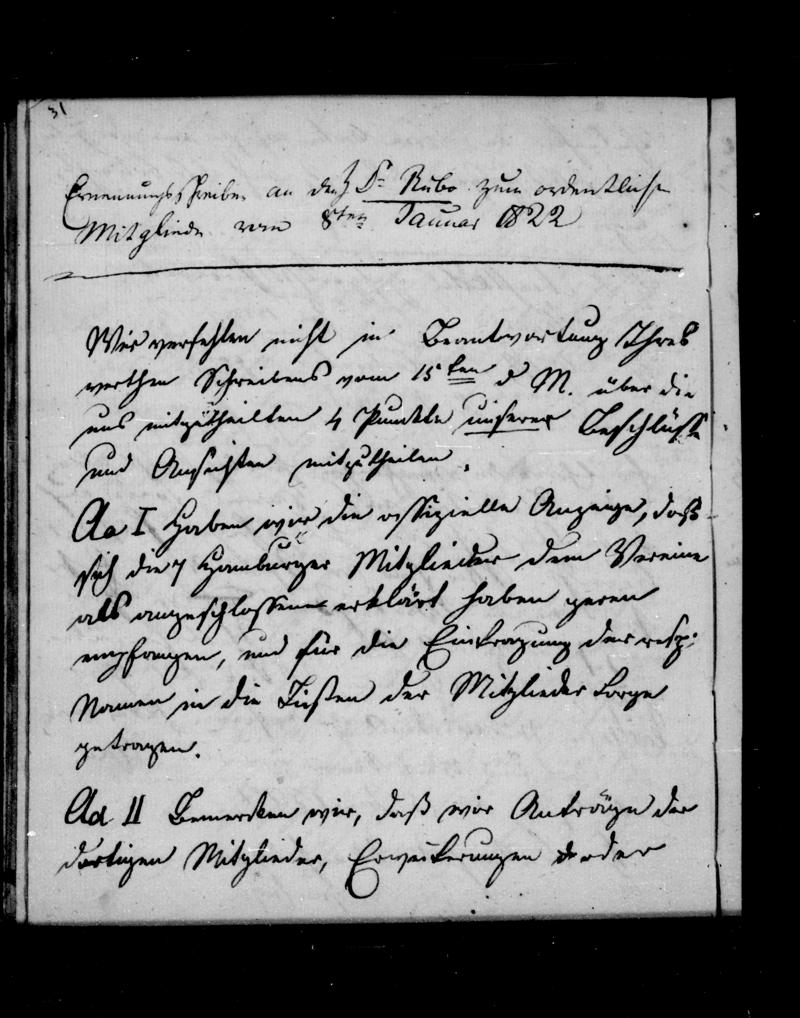 31
Ernennungsschreiben an den H Dr Rubo zum ordentlichen
Mitgliede vom 8ten Januar 1822
Wir verfehlen nicht in Beantwortung Ihres
werthen Schreibens vom 15ten d M. über die
uns mitgetheilten 4 Punkte unsere Beschlüsse
und Ansichten mitzutheilen.
Ad I Haben wir die offizielle Anzeige, daß
sich die 7 Hamburger Mitglieder dem Vereine
als angeschlossen erklärt haben gerne
empfangen, und für die Eintragung der resp:
Namen in die Listen der Mitglieder Sorge
getragen.
Ad II Bemerken wir, daß wir Anträge der
dortigen Mitglieder, Erweiterungen oder